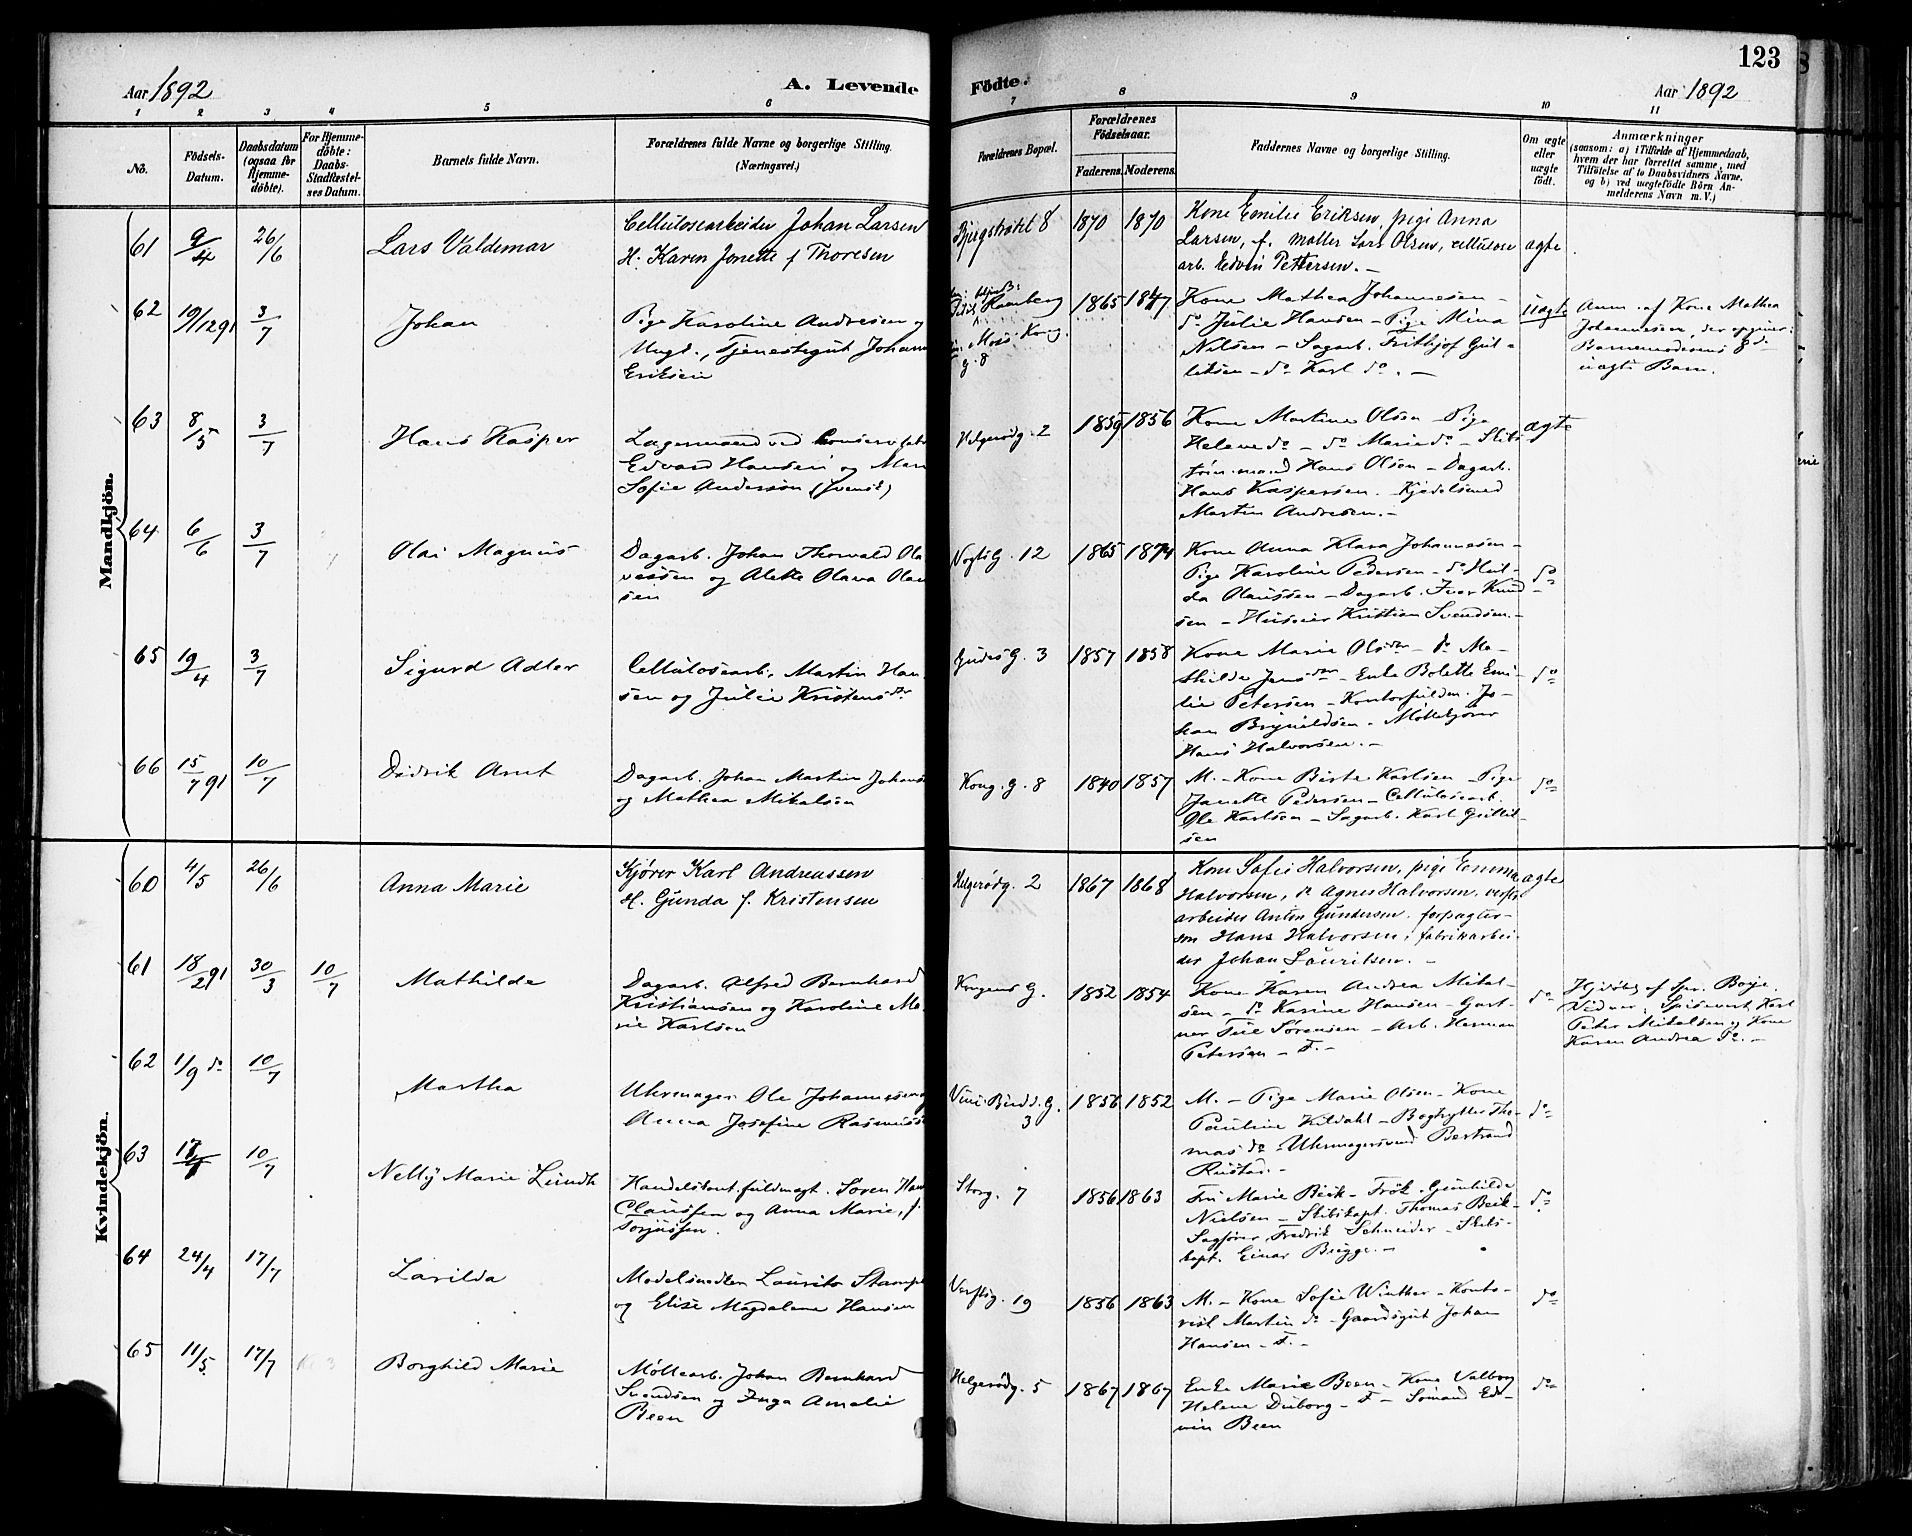 Aar 1892
A. Levende
Födte.
Aar 1892
123
1 2 3 4 5 6 7 8 9 10 11
No.
Födsels-
Datum.
Daabsdatum
(ogsaa for
Hjemme-
döbte).
For Hjemme-
döbte:
Daabs-
Stadfæstel-
ses Datum.
Barnets fulde Navn.
Forældrenes fulde Navne og borgerlige Stilling.
(Næringsvei.)
Forældrenes Bopæl.
Forældrenes
Födselsaar.
Faderens. Moderens.
Faddernes Navne og borgerlige Stilling.
Om ægte
eller
uægte
födt.
Anmærkninger
(saasom: a) i Tilfælde af Hjemmedaab,
hvem der har forrettet samme, med
Tilföielse af to Daabsvidners Navne,
og b) ved uægtefödte Börn An-
melderens Navn m. V.)
Mandkjön.
61 9/4 26/6 Lars Valdemar
Cellulosearbeider Johan Larsen
H. Karen Jonette f Thoresen
8 1870 1870
Kone Emilie Eriksen, pige Anna
Larsen, f. Møller Lars Olsen, cellulose
arb. Edvin Pettersen. –
ægte
62 19/12 91 3/7 Johan
Pige Karoline Andresen og
Ungk., Tjenestegut Johan
Eriksen
Moss Kong.
g. 8
1865 1847
Kone Mathea Johannesen –
do Julie Hansen – Pige Mina
Nilsen – Sagarb. Frithjof Gul-
liksen – do Karl do. –
uægte
Anm. af Kone Mathea
Johannesen, der opgiver:
Barnemoderens
uægte Barn.
63 8/5 3/7 Hans Kasper
Lagermand ved
Edvard Hansen og
Sofie Anderson (svensk)
Helgerödg. 2 1859 1856
Kone Martine Olsen – Pige
Helene do – do Marie do – Skibs
tøm.mand Hans Olsen – Dagarb.
Hans Kaspersen. Kjedelsmed
Martin Andresen. –
ægte
64 6/6 3/7 Olai Magnus
Dagarb. Johan Thorvald Ola
vessen og Alette Olava Olau
sen
Vogts G. 12 1865 1874
Kone Anna Klara Johannesen –
Pige Karoline Pedersen – do Hul-
da Olaussen – Dagarb. Iver Knud
sen – Huseier Kristian Svendsen. –
do
65 19/4 3/7 Sigurd Adler
Cellulosearb. Martin Han
sen og Julie Kristensdr
Gudes G. 3 1857 1858
Kone Marie Olsdr – do Ma-
thilde Jensdr – Enke Bolette Emi-
lie Petersen – Kontorfuldm. Jo-
han Brynildsen – Møllekjører
Hans Halvorsen. –
do
66 15/7 91 10/7 Didrik Arnt
Dagarb. Johan Martin Johans
og Mathea Mikalsen
Kong. G. 8 1840 1857
M. – Kone Birte Karlsen – Pige
Janette Pedersen – Cellulosearb.
Ole Karlsen – Sagarb. Karl Gullik-
sen
do
Kvindekjön.
60 4/5 26/6 Anna Marie
Kjører Karl Andreassen
H. Gunda f. Kristensen
Helgerödg. 2 1867 1868
Kone Sofie Halvorsen, pige Emma
Halvorsen, do Agnes Halvorsen, verfts
arbeider Anton Gundersen. forpagter-
søn Hans Halvorsen, fabrikarbei-
der Johan Lauritsen. –
ægte
61 18/2 91 30/3 10/7 Mathilde
Dagarb. Alfred Bernhard
Kristiansen og Karoline Ma
rie Karlsen
Kongens G. 1852 1854
Kone Karen Andrea Mikal-
sen – do Karine Hansen – Gart-
ner Sørensen – Arb. Herman
Petersen – F. –
do
Hjdöbt af Spr. Boye.
Vidner: Karl
Peter Mikalsen og Kone
Karen Andrea do. –
62 1/9 do 10/7 Martha
Uhrmager Ole Johannessen og
Anna Josefine Rasmuss
G.
3
1856 1852
M. – Pige Marie Olsen – Kone
Pauline Kildahl – Bogtrykker Tho-
mas do – Uhrmagersvend Bertrand
Rustad. –
do
63 10/7 Nelly Marie Lundh
Handelskont.fuldmægt. Søren Han
Claussen og Anna Marie, f.
Torjussen.
Storg. 7 1856 1863
Fru Marie Beck – Frøk. Gunhilde
Nielsen – Skibskapt. Thomas Beck –
Sagfører Fredrik Schneider – Skibs-
kapt. Einar Brygge. –
do
64 24/4 17/7 Larilda
Modelsnedker Laurits Stamp
og Elise Magdalene Hansen
Verftsg. 19 1856 1863
M. – Kone Sofie Winther – Konto-
rist Martin do – Gaardsgut Johan
Hansen – F. –
do
65 11/5 17/7 Borghild Marie
Møllearb. Johan Bernhard
Svendsen og Inga Amalie
Been
Helgerödg. 5 1867 1867
Enke Marie Been – Kone Valborg
Helene Duborg – F – Sömand Ed-
vin Been
do